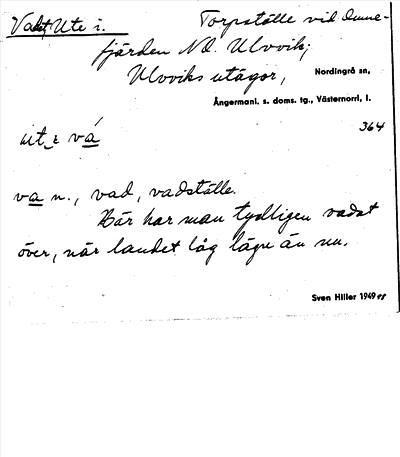 Vadet, Ute i. Torpställe vid Omne-
fjärden NO. Ulvvik;
Ulvviks utägor, Nordingrå sn,
Ångermanl. s. doms. tg., Västernorrl. l.
364
ut_ɛ vá
va n., vad, vadställe.
Här har man tydligen vadat
över, när landet låg lägre än nu.
Sven Hiller 1949